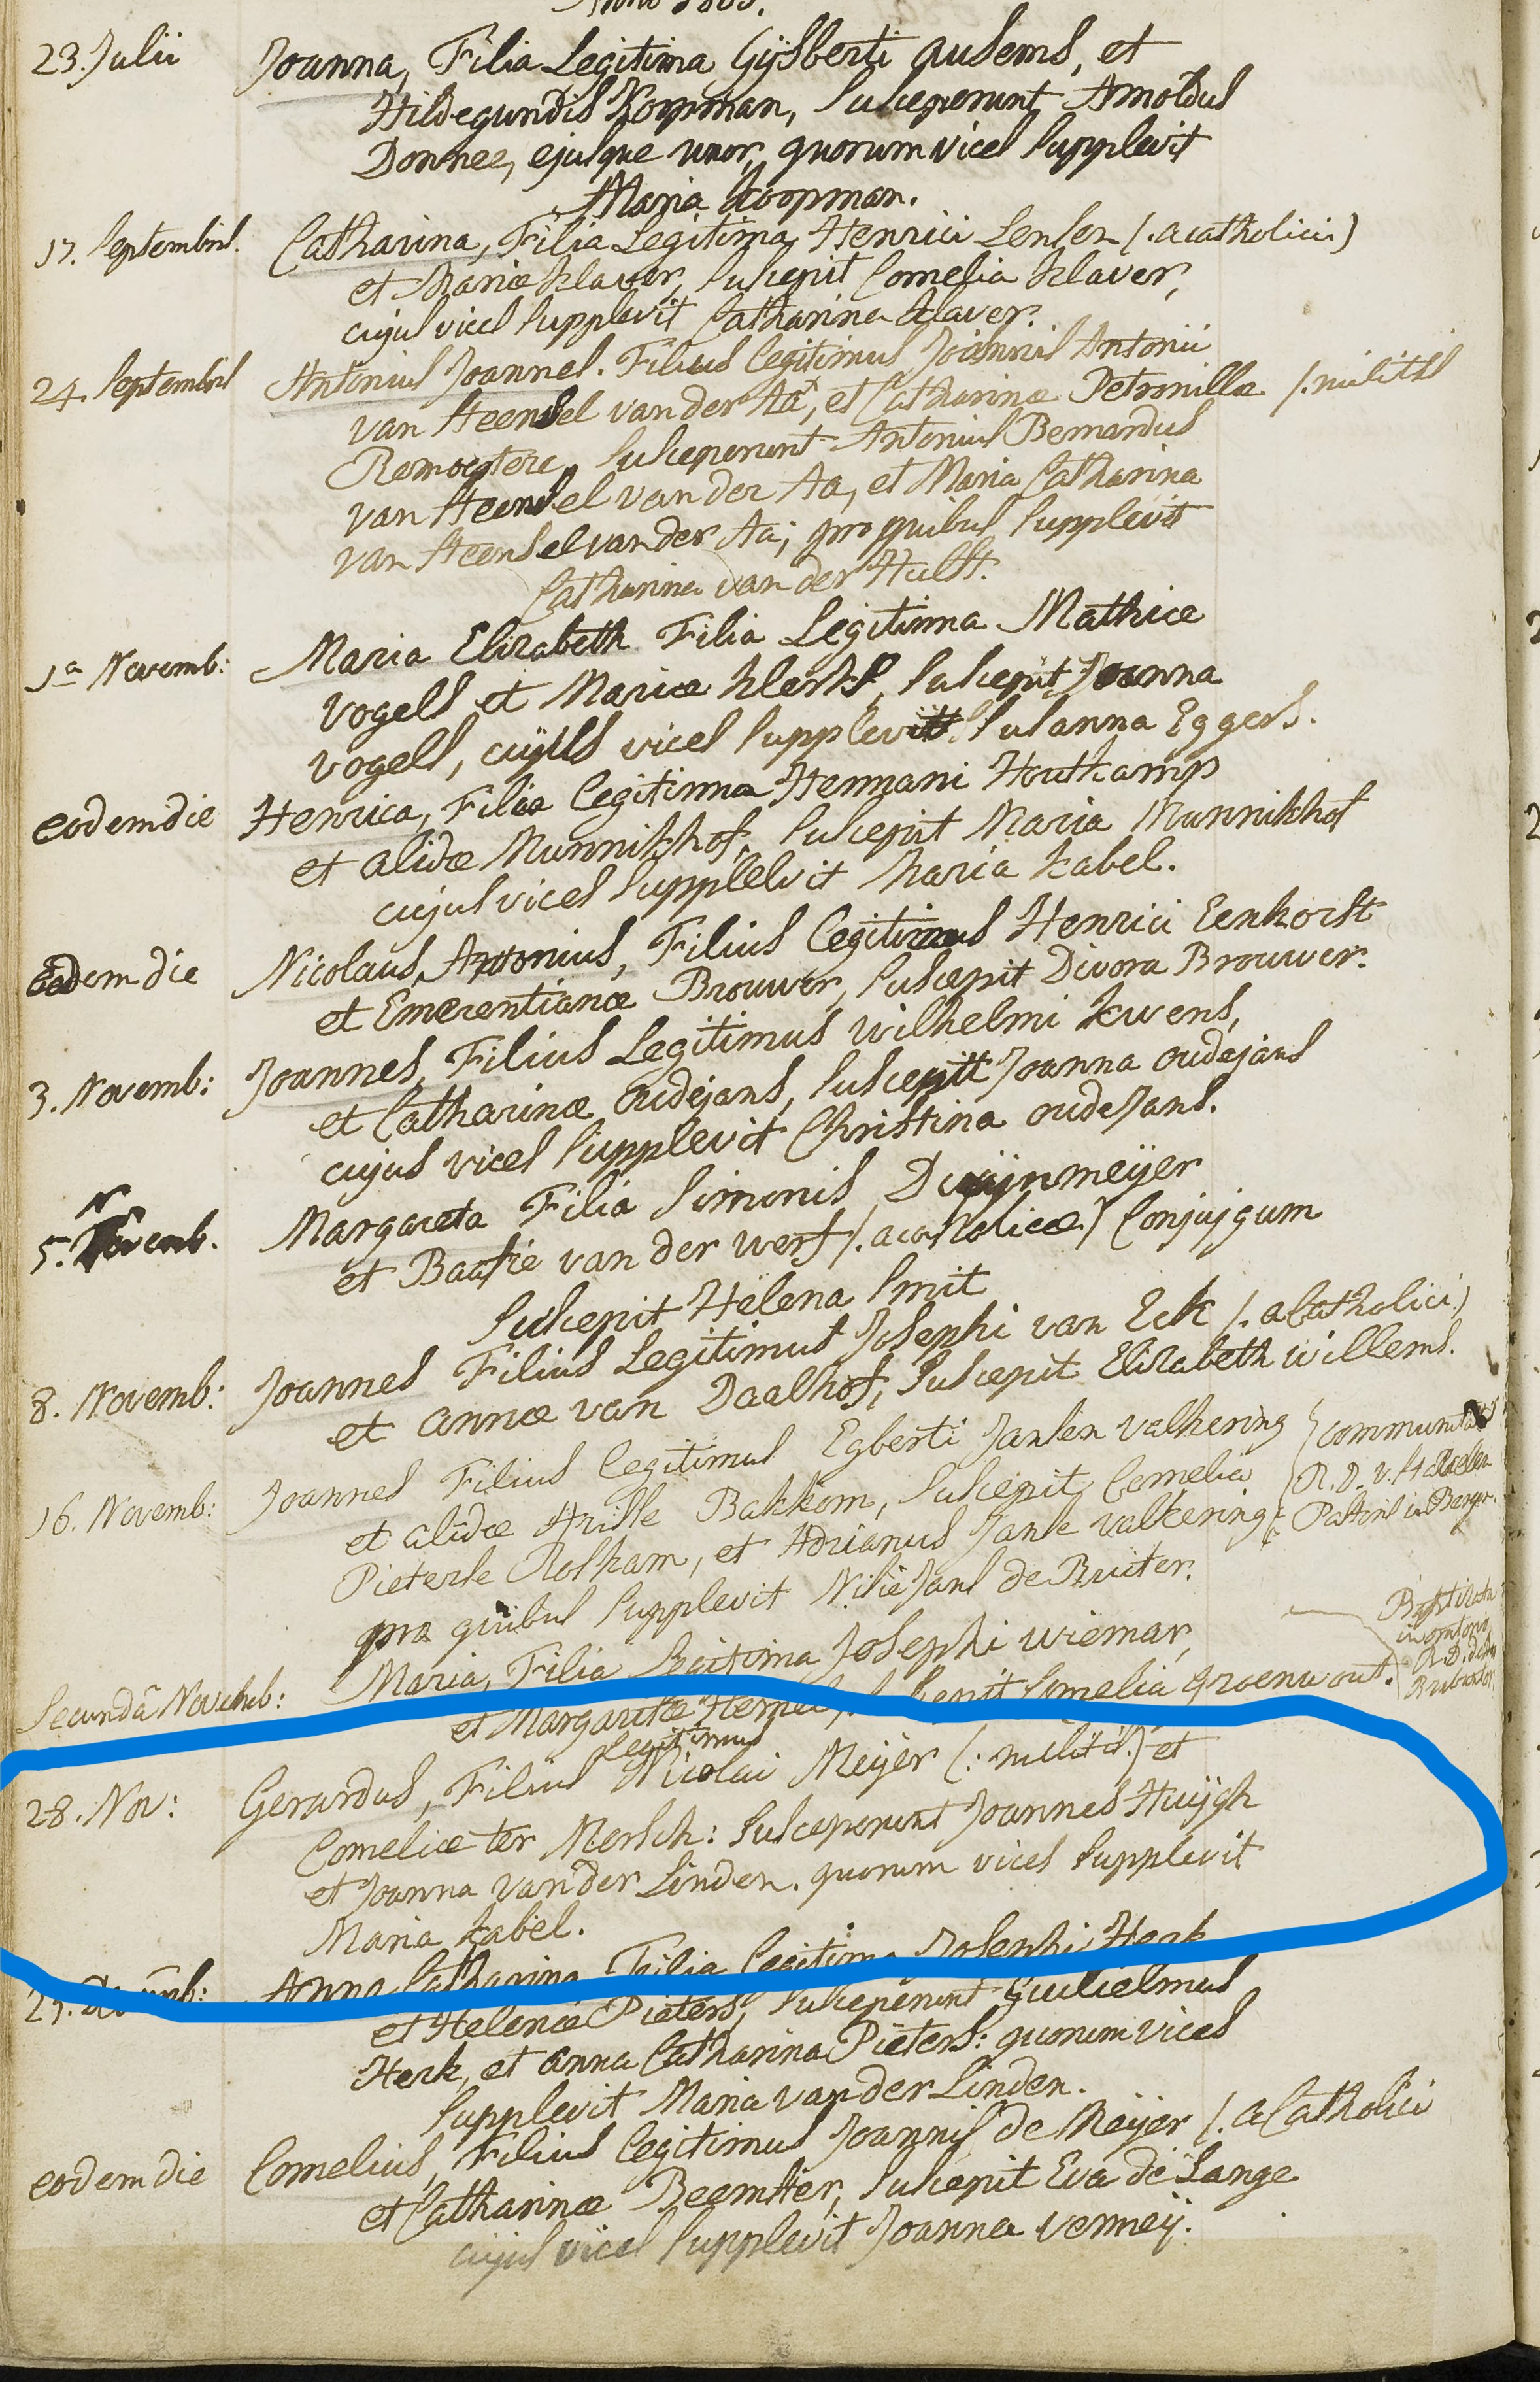 23. Julii Joanna, Filia Legitima Gijsberti Ausems, et
Hildegundis Koopman, Susceperunt Arnoldus
Donnee, ejusque uxor, quorum vices Supplevit
Maria Koopman.
17. Septembris. Catharina, Filia Legitima Henrici Lensen (. acatholici.)
et Mariæ Klaver, Suscepit Cornelia Klaver,
cujus vices Supplevit Catharina Klaver.
24. Septembris Antonius Joannes. Filius legitimus Joannis Antonii
van Heensel van der Aa, et Catharinæ Petronillæ /. militis
Susceperunt Antonius Bernardus
van Heensel van der Aa, et Maria Catharina
van Heensel van der Aa; pro quibus Supplevit
Catharina van der Hulst.
1a Novemb: Maria Elizabeth Filia Legitima Mathiæ
Vogels et Mariæ Suscepit Joanna
Vogels, cujus vices Supplevit Susanna Eggers.
eodem die Henrica, Filia legitima Hermani Houtkamp
et Alidæ Munnikhof, Suscepit Maria Munnikhof
cujus vices Supplevit Maria Kabel.
Eodem die Nicolaus, Antonius, Filius legitimus Henrici Eenhorst
et Emerentianæ Brouwer, Suscepit Divora Brouwer.
3. Novemb: Joannes, Filius Legitimus Wilhelmi Kwens,
et Catharinæ Oudejans, Suscepit Joanna Oudejans
cujus vices Supplevit Christina OudeJans.
5. Novemb. Margareta Filia Simonis Duijnmeijer
et Baatie van der Werf (. acatholicæ) Conjugum
Suscepit Helena Smit
8. Novemb: Joannes Filius Legitimus Josephi van Eck (. acatholici.)
et Annæ van Daalhof, Suscepit Elizabeth Willems.
16. Novemb: Joannes Filius legitimus Egberti Jansen Valkering
et Alidæ Bakkom, Suscepit Cornelia R. D. v.
Pieterse Rolkam, et Adrianus Janse Valkering Pastoris in Bergen.
pro quibus Supplevit Jans de Ruiter.
Secundâ Novemb: Maria, Filia Legitima Josephi Wiemar,
et Margaritæ Suscepit Cornelia Groenwout.
in oratorio
legitimus
28. Nov: Gerardus, Filius Nicolai Meijer (: militis.) et
Corneliæ ter Mersch: Susceperunt Joannes Huijgh
et Joanna van der Linden. quorum vices Supplevit
Maria Kabel.
Anna Catharina Filia legitima Josephi Herk
et Helenæ Pieters, Susceperunt Guilielmus
Herk, et Anna Catharina Pieters: quorum vices
Supplevit Maria van der Linden.
eodem die Cornelius, Filius legitimus Joannis de Meijer (. acatholici
et Catharinæ Beemster, Suscepit Eva de Lange
cujus vices Supplevit Joanna Vermeij.